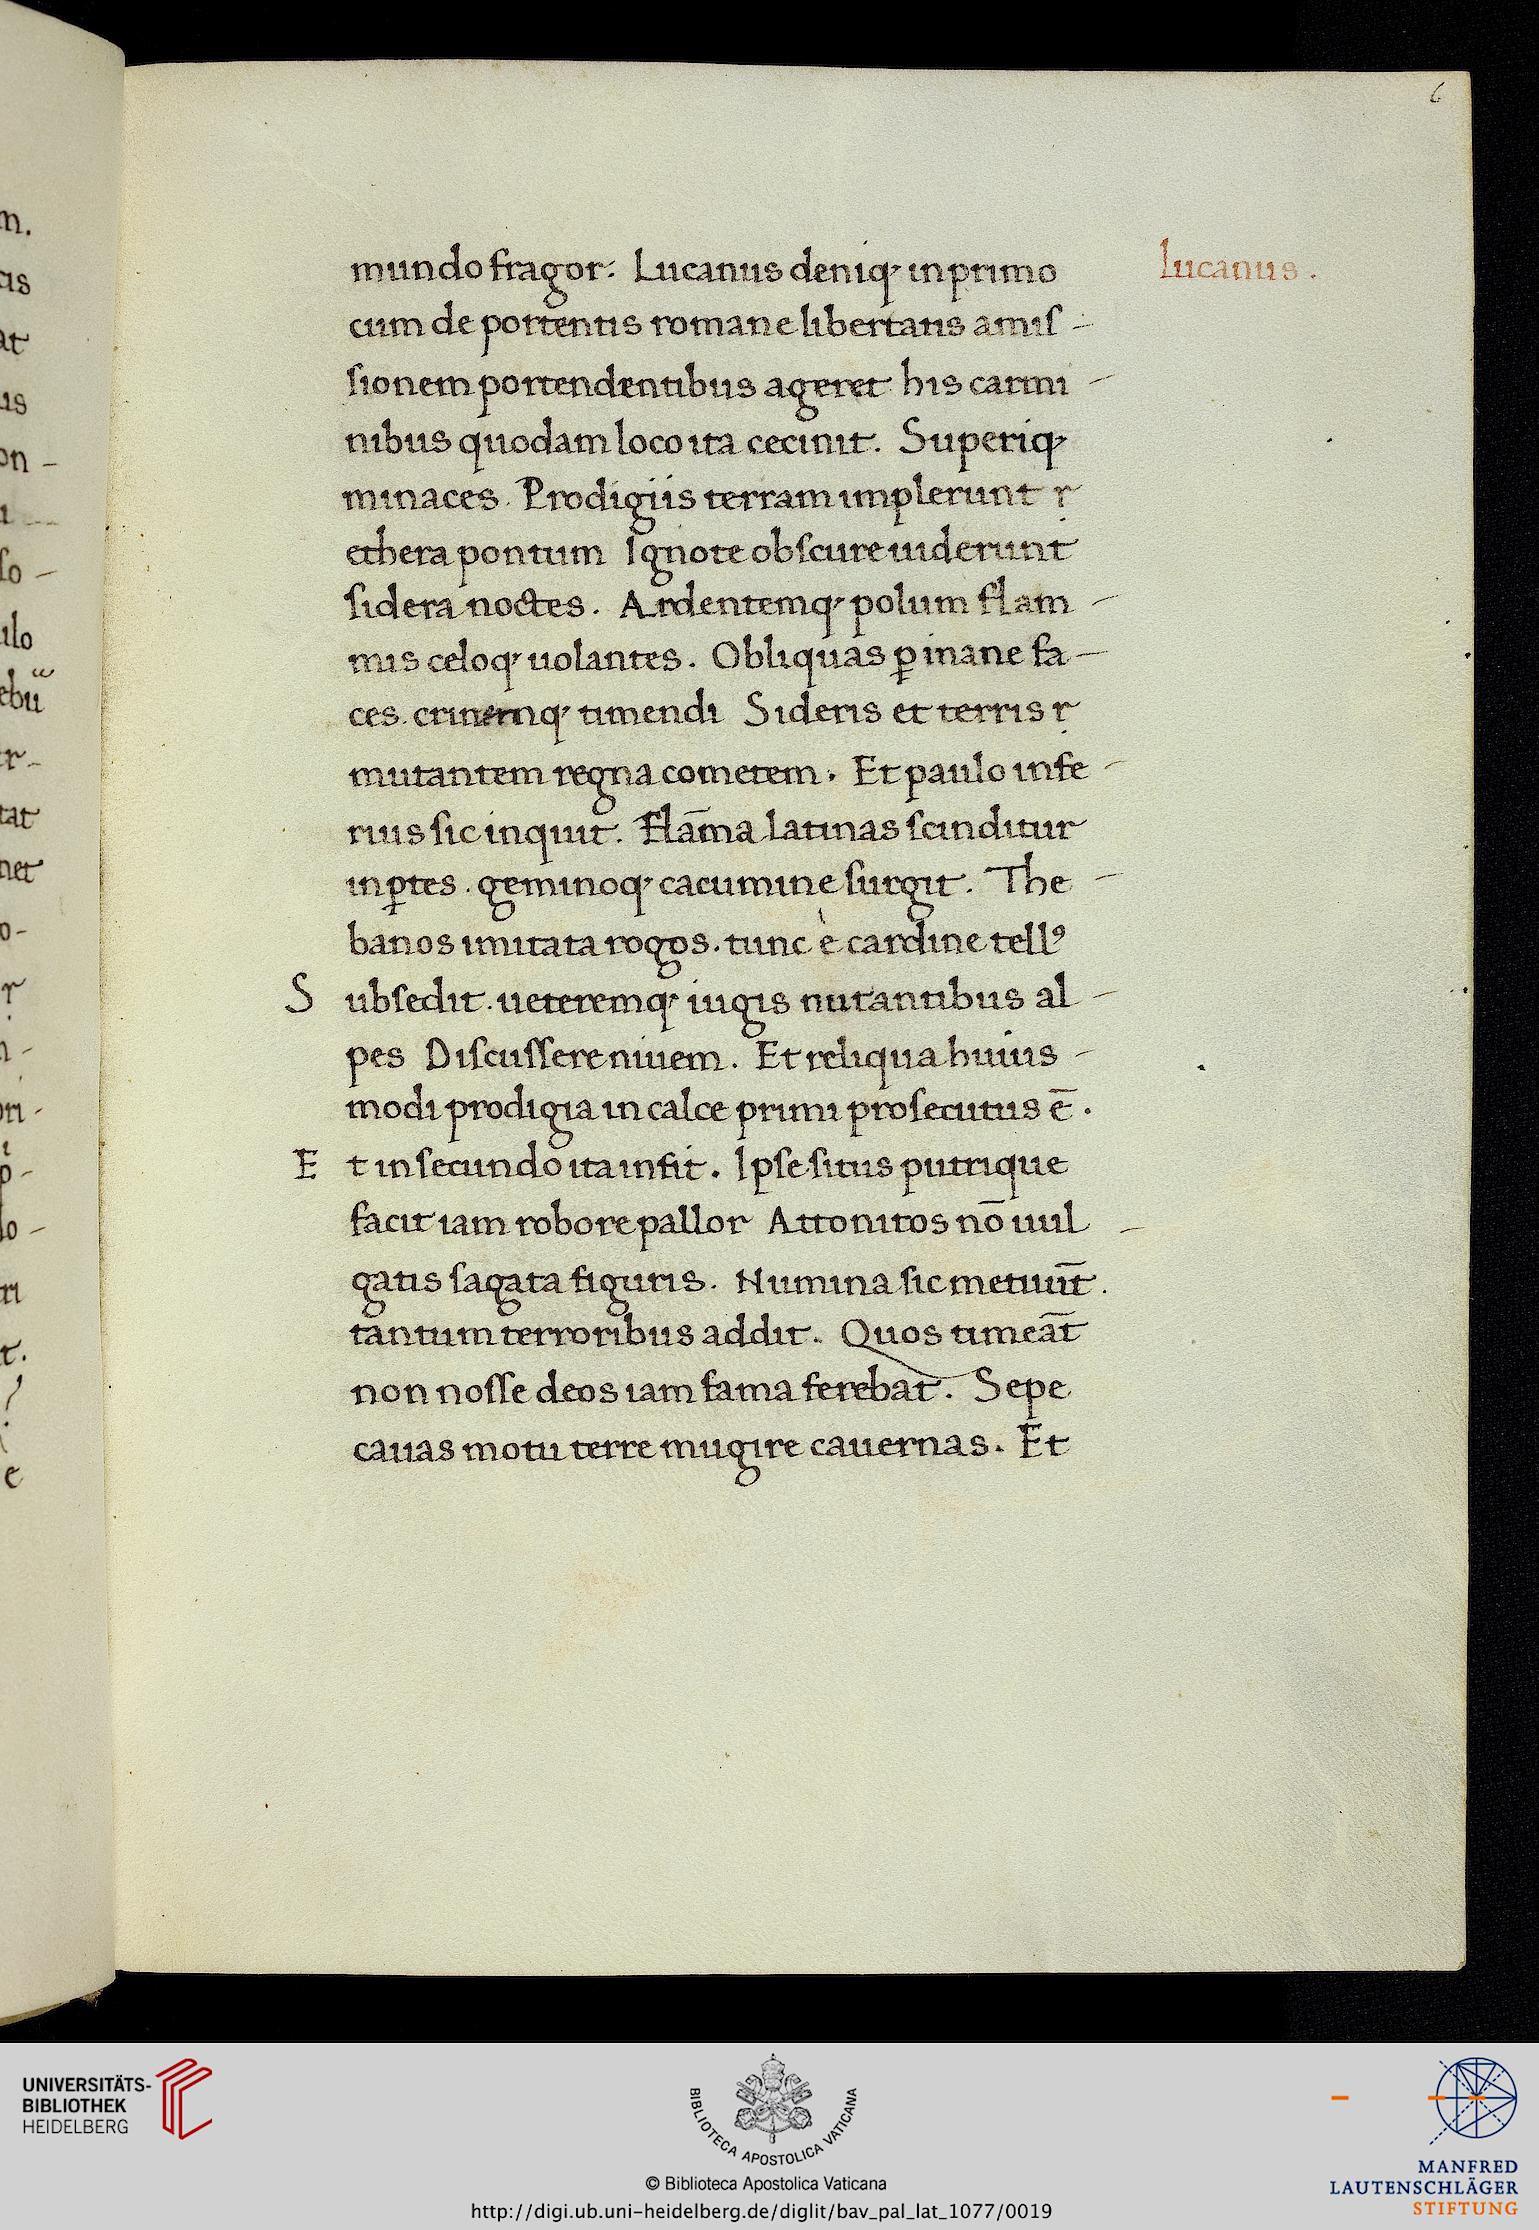 6
mundo fragor: Lucanus deniq; in primo
lucanus.
cum de portentis romane libertatis amiſ-
ſionem portendentibus ageret his carmi-
nibus quodam loco ita cecinit. Superiq;
minaces. Prodigiis terram implerunt r
ethera pontum Ignote obſcure uiderunt
ſidera noctes. Ardentemq; polum flam-
mis celoq; uolantes. Obliquas ꝑ inane fa-
ces. crinemq; timendi Sideris et terris r
mutantem regna cometem. Et paulo infe-
rius ſic inquit. Flāma latinas ſcinditur
in ꝑtes. geminoq; cacumine ſurgit. The-
banos imitata rogos. tunc è cardine tellꝰ
S ubſedit. ueteremq; iugis nutantibus al-
pes Diſcuſſere niuem. Et reliqua huius-
modi prodigia in calce primi proſecutus ē.
E t in ſecundo ita infit. Ipſe ſitus putrique
facit iam robore pallor Attonitos nō uul-
gatis ſagata figuris. Numina ſic metuūt.
tantum terroribus addit. Quos timeāt
non noſſe deos iam fama ferebat. Sepe
cauas motu terre mugire cauernas. Et
UNIVERSITÄTS-
BIBLIOTHEK
HEIDELBERG
BIBLIOTECA APOSTOLICA VATICANA
© Biblioteca Apostolica Vaticana
http://digi.ub.uni-heidelberg.de/diglit/bav_pal_lat_1077/0019
MANFRED
LAUTENSCHLÄGER
STIFTUNG